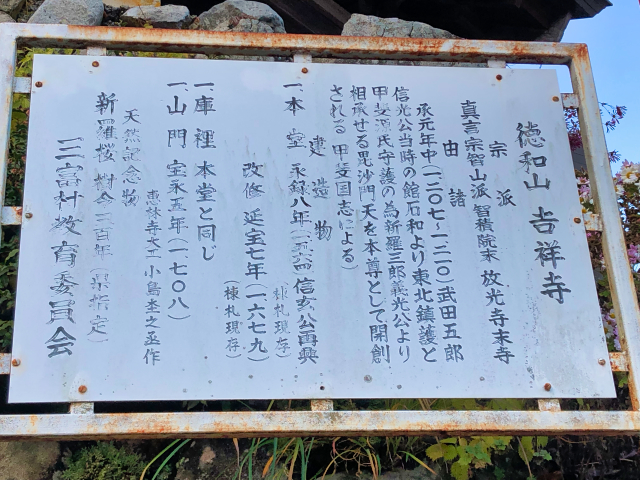 徳和山 吉祥寺
宗派
真言宗智山派 智積院末 放光寺末寺
由緒
承元年中(一二〇七~一二一〇)武田五郎
信光公当時の館石和より東北鎮護と
甲斐源氏守護の為新羅三郎義光公より
相承せる毘沙門天を本尊として開創
される(甲斐国志による)
建造物
一、本堂 永録八年(一五六四)信玄公再興
(棟札現存)
改修 延宝七年(一六七九)
(棟札現存)
一、庫裡 本堂と同じ
一、山門 宝永五年(一七〇八)
恵林寺大工 小島杢之丞作
天然記念物
新羅桜 樹令三百年(県指定)
三富村教育委員会